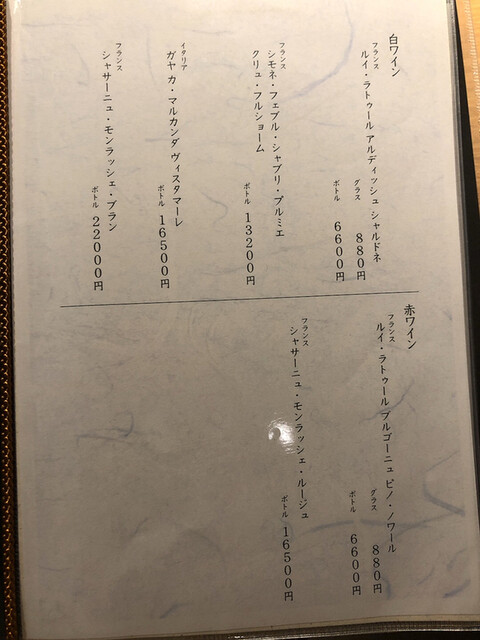 白ワイン
フランス
ルイ・ラトゥール アルディッシュ シャルドネ
グラス 880円
ボトル 6600円
フランス
シモネ・フェブル・シャブリ・プルミエ
クリュ・フルショーム
ボトル 13200円
イタリア
ガヤ カ・マルカンダ ヴィスタマーレ
ボトル 16500円
フランス
シャサーニュ・モンラッシェ・ブラン
ボトル 22000円
赤ワイン
フランス
ルイ・ラトゥール ブルゴーニュ ピノ・ノワール
グラス 880円
ボトル 6600円
フランス
シャサーニュ・モンラッシェ・ルージュ
ボトル 16500円